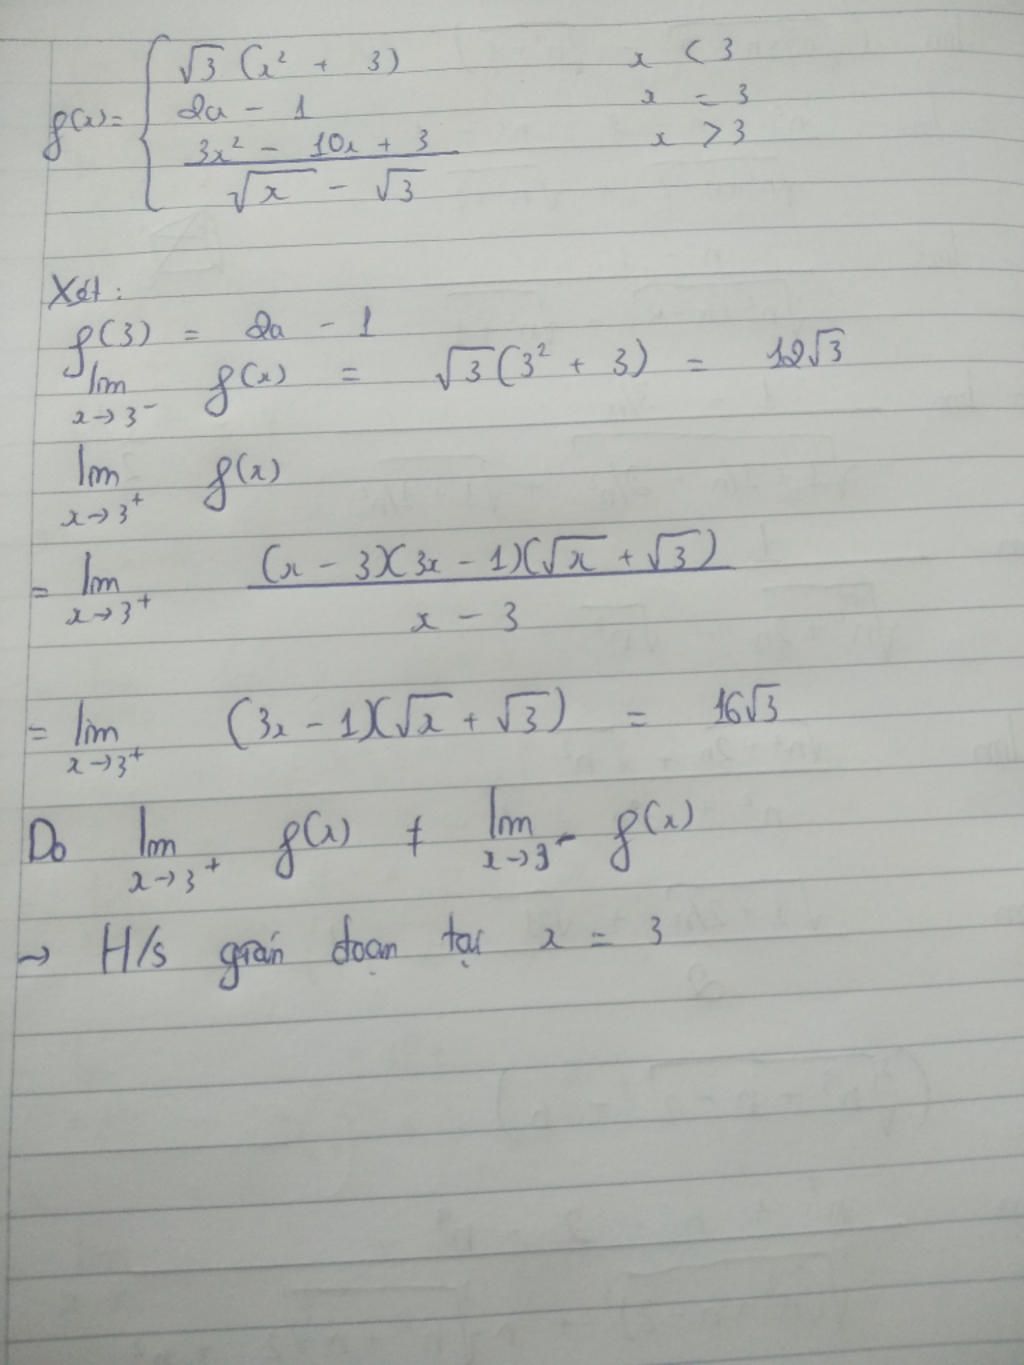 f(x) = { √3 (x² + 3) x < 3
2a - 1 x = 3
(3x² - 10x + 3) / (√x - √3) x > 3
Xét :
f(3) = 2a - 1
lim x→3⁻ f(x) = √3 (3² + 3) = 12√3
lim x→3⁺ f(x)
= lim x→3⁺ (x - 3)(3x - 1)(√x + √3) / (x - 3)
= lim x→3⁺ (3x - 1)(√x + √3) = 16√3
Do lim x→3⁺ f(x) ≠ lim x→3⁻ f(x)
→ H/s gián đoạn tại x = 3